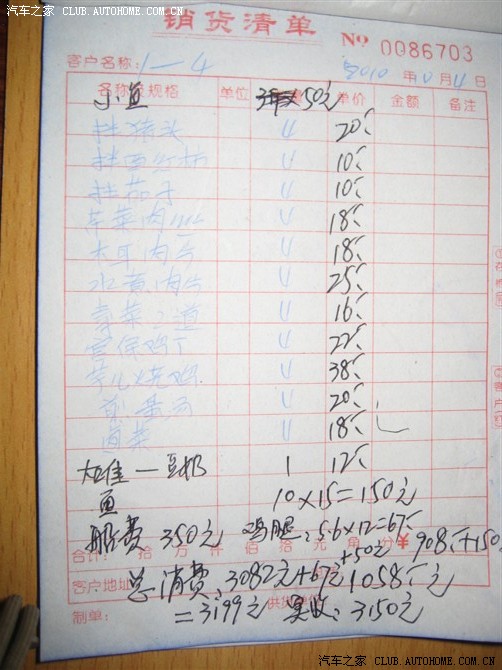 汽车之家 CLUB.AUTOHOME.COM.CN
汽车之家 CLUB.AUTOHOME.COM.CN
销货清单
No 0086703
客户名称: 1—4 2010年 月 日
名称及规格 单位 数量 单价 金额 备注
50元
拌猪头 4 20元
拌西红柿 4 10元
拌茄子 4 10元
芹菜肉丝 4 18元
木耳肉片 4 18元
水煮肉片 4 25元
4 16元
宫保鸡丁 4 22元
芋儿烧鸡 4 38元
4 20元
4 18元
大维一豆奶 1 12元
鱼 10×15=150元
船费 350元 鸡腿: 5.6×12=67元
+50元 908元+150
合计: 拾 万 仟 佰 拾 元 角 分 ¥
客户地址 总消费: 3082元+67元 1058元
=3199元 实收: 3150元
制单:
汽车之家 CLUB.AUTOHOME.COM.CN